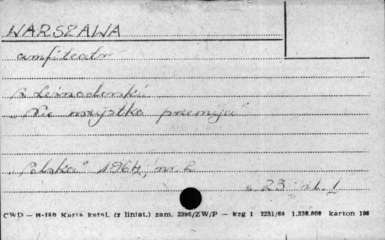 WARSZAWA
amfiteatr
B. Leśnodorski
„Nie wszystko przemija"
„Polska" 1964, nr 2
s. 23 il. 1
CWD — H-160 Karta katal. (z liniat.) zam. 2396/ZW/P — kzg 1 2231/64 1.338.000 karton 180